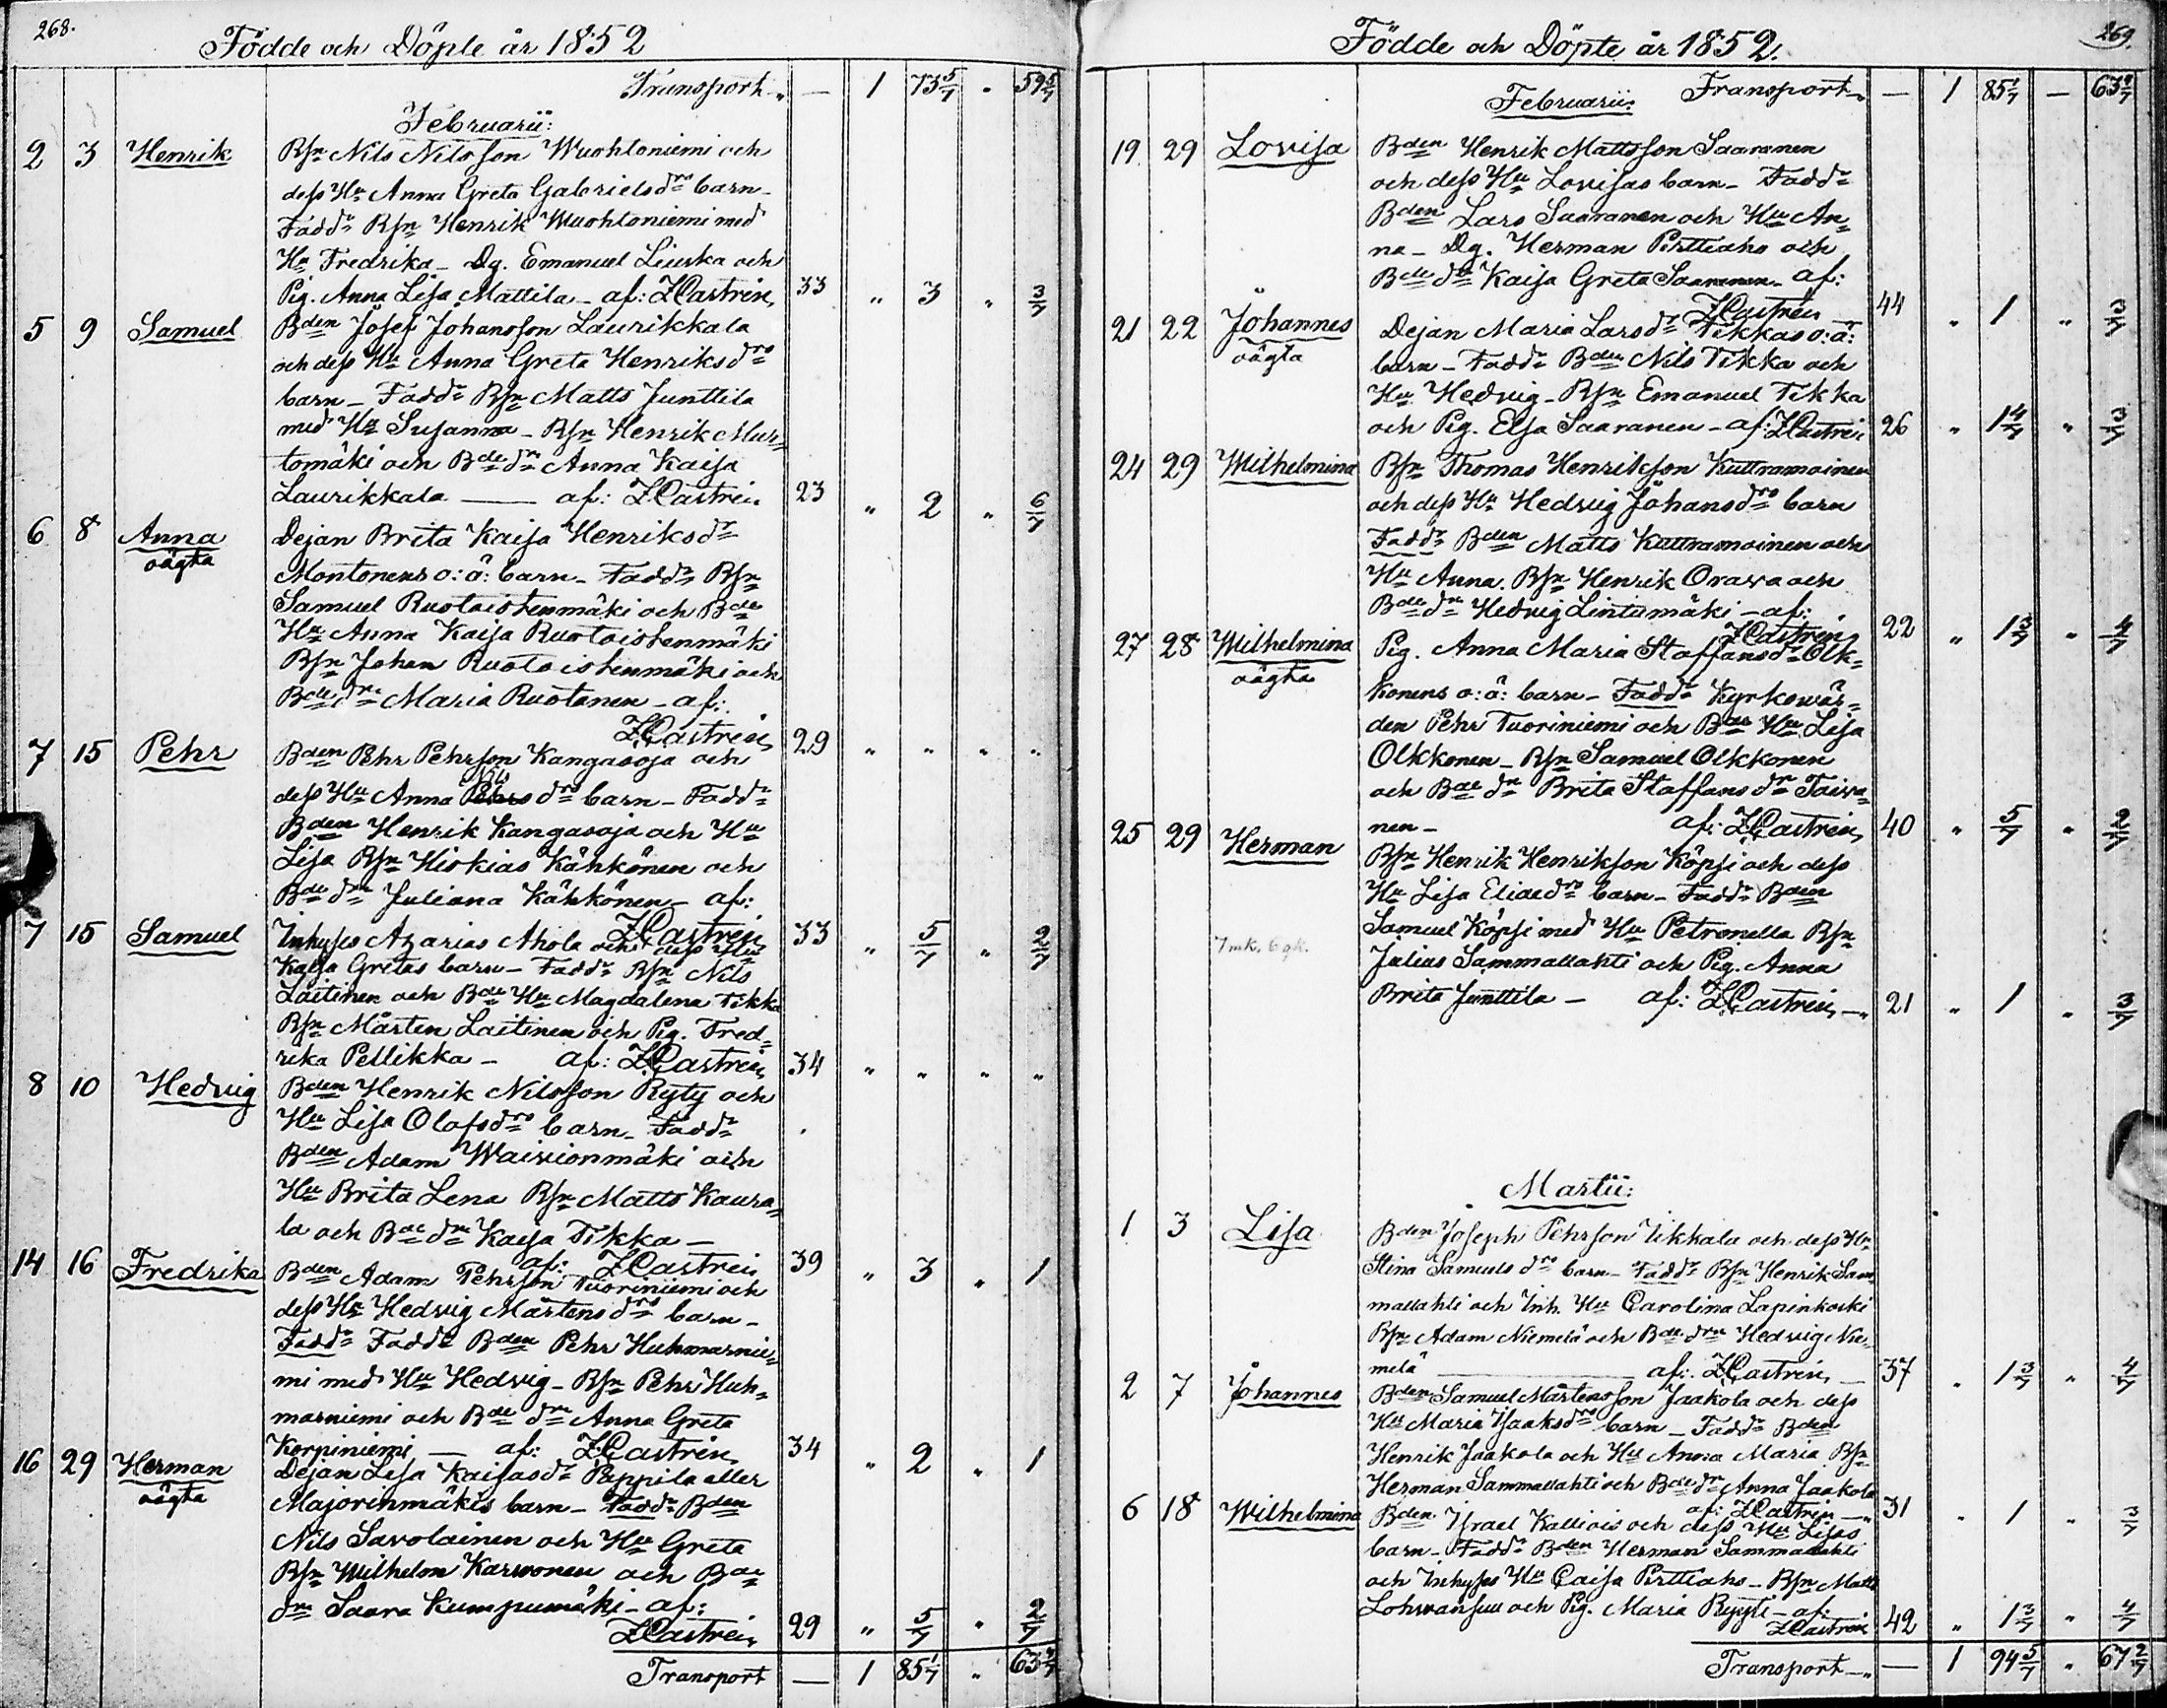 268.
Födde och Döpte år 1852
Transport — 1 73 5/7 " 59 5/7
Februarii:
2 3 Henrik Bsn Nils Nilsson Wuohtoniemi och
dess Hu Anna Greta Gabrielsdrs barn –
Faddr Bsn Henrik Wuohtoniemi med
Hu Fredrika – Dg. Emanuel Liuska och
Pig. Anna Lisa Mattila – af: ZCastrén 33 " 3 " 3/7
5 9 Samuel Bden Josef Johansson Laurikkala
och dess Hu Anna Greta Henriksdrs
barn – Faddr Bsn Matts Junttila
med Hu Susanna – Bsn Henrik Mur=
tomäki och Bde dr Anna Kaisa
Laurikkala — af: ZCastrén 23 " 2 " 6/7
6 8 Anna Dejan Brita Kaisa Henriksdr
oägta Montonens o: ä: barn – Faddr Bsn
Samuel Ruotoistenmäki och Bde
Hu Anna Kaisa Ruotoistenmäki
Bsn Johan Ruotoistenmäki och
Bde dr Maria Ruotanen – af:
ZCastrén 29 " " " "
7 15 Pehr Bden Pehr Pehrsson Kangasoja och
Nils
dess Hu Anna Pehrsdrs barn – Faddr
Bden Henrik Kangasoja och Hu
Lisa Bsn Hiskias Kähkönen och
Bde dr Juliana Kähkönen – af:
ZCastrén 33 " 5/7 " 2/7
7 15 Samuel Inhyses Azarias Ahola och dess Hu
Kaisa Gretas barn – Faddr Bsn Nils
Laitinen och Bde Hu Magdalena Tikka
Bsn Mårten Laitinen och Pig. Fred=
rika Pellikka – af: ZCastrén 34 " " " "
8 10 Hedvig Bden Henrik Nilsson Ryty och
Hu Lisa Olofsdrs barn – Faddr
Bden Adam Waivionmäki och
Hu Brita Lena Bsn Matts Kaura=
la och Bde dr Kaisa Tikka –
af: ZCastrén 39 " 3 " 1
14 16 Fredrika Bden Adam Pehrsson Tuoriniemi och
dess Hu Hedvig Mårtensdrs barn –
Faddr Faddr Bden Pehr Huhmarnie=
mi med Hu Hedvig – Bsn Pehr Huh=
marniemi och Bde dr Anna Greta
Korpiniemi — af: ZCastrén 34 " 2 " 1
16 29 Herman Dejan Lisa Kaisasdr Pappila eller
oägta Majorinmäkis barn – Faddr Bden
Nils Savolainen och Hu Greta
Bsn Wilhelm Karvonen och Bde
dr Saara Kumpumäki – af:
ZCastrén 29 " 5/7 " 2/7
Transport — 1 85 1/7 " 63
269.
Födde och Döpte år 1852.
Transport — 1 85 1/7 — 63
Februarii:
19 29 Lovisa Bden Henrik Mattsson Saaranen
och dess Hu Lovisas barn – Faddr
Bden Lars Saaranen och Hu An=
na – Dg. Herman Pirttiaho och
Bde dr Kaisa Greta Saaranen – af:
ZCastrén 44 " 1 " 3/7
21 22 Johannes Dejan Maria Larsdr Tikkas o: ä:
oägta barn – Faddr Bden Nils Tikka och
Hu Hedvig – Bsn Emanuel Tikka
och Pig. Elsa Saaranen – af: ZCastrén 26 " 1 4/7 " 3/7
24 29 Wilhelmina Bsn Thomas Henriksson Kuttramoinen
och dess Hu Hedvig Johansdrs barn
Faddr Bden Matts Kuttramoinen och
Hu Anna. Bsn Henrik Orava och
Bde dr Hedvig Lintumäki – af:
ZCastrén 22 " 1 3/7 " 4/7
27 28 Wilhelmina Pig. Anna Maria Staffansdr Olk=
oägta konens o: ä: barn – Faddr Kyrkowär=
den Pehr Tuoriniemi och Bde Hu Lisa
Olkkonen – Bsn Samuel Olkkonen
och Bde dr Brita Staffansdr Taiva=
nen – af: ZCastrén 40 " 5/7 " 2/7
25 29 Herman Bsn Henrik Henriksson Köpsi och dess
Hu Lisa Eliaedrs barn – Faddr Bden
Samuel Köpsi med Hu Petronella Bsn
7 mk. 6 gk. Julius Sammallahti och Pig. Anna
Brita Junttila – af: ZCastrén 21 " 1 " 3/7
Martii:
1 3 Lisa Bden Joseph Pehrsson Ukkala och dess Hu
Stina Samuelsdrs barn – Faddr Bsn Henrik Sam
mallahti och Inh. Hu Carolina Lapinkoski
Bsn Adam Niemelä och Bde dr Hedvig Nie=
melä — af: ZCastrén 37 " 1 3/7 " 4/7
2 7 Johannes Bden Samuel Mårtensson Jaakola och dess
Hu Maria Isaksdrs barn – Faddr Bden
Henrik Jaakola och Hu Anna Maria Bsn
Herman Sammallahti och Bde dr Anna Jaakola
af: ZCastrén 31 " 1 " 3/7
6 18 Wilhelmina Bden Israel Kalliois och dess Hu Lisas
barn – Faddr Bden Herman Sammallahti
och Inhyses Hu Caisa Pirttiaho – Bsn Matts
Lohvansuu och Pig. Maria Ryyti – af:
ZCastrén 42 " 1 3/7 " 4/7
Transport — 1 94 5/7 " 67 2/7